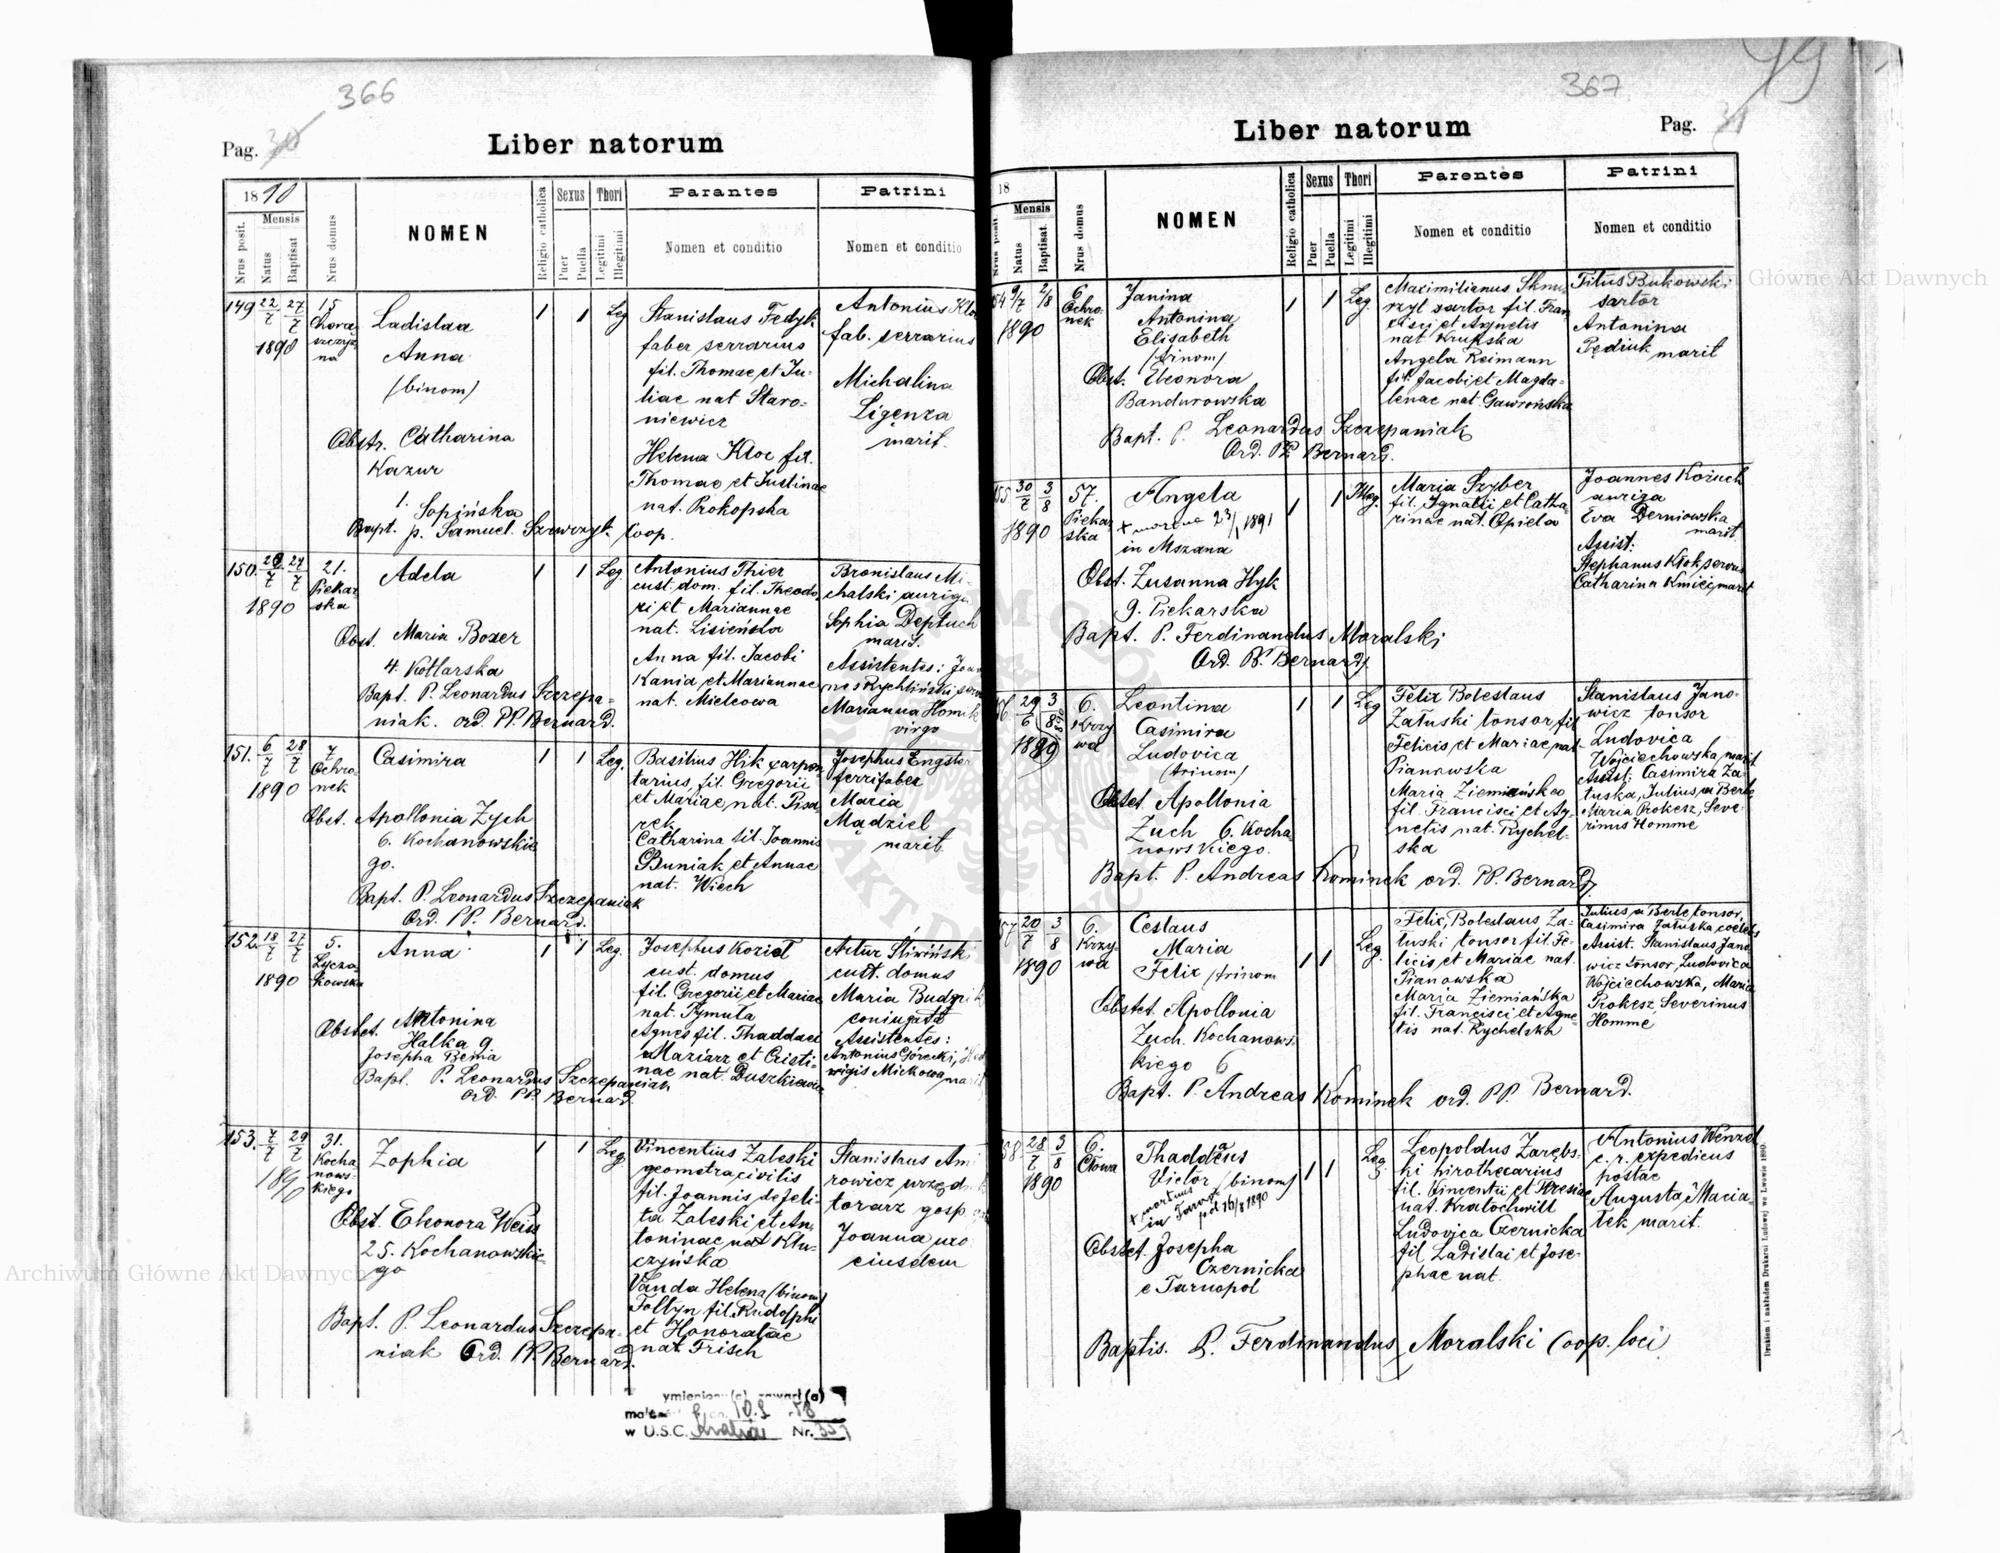 366
Pag. 30
Liber natorum
1890
Mensis
Nrus posit.
Natus
Baptisat
Nrus domus
NOMEN
Religio catholica
Sexus
Puer
Puella
Thori
Legitimi
Illegitimi
Parentes
Nomen et conditio
Patrini
Nomen et conditio
149 22/7 27/7 1890
15 Chorąszczyzna
Ladislaa
Anna
(binom)
Obstr. Catharina
Kazur
1. Sopińska
Bapt. p. Samuel. Szewczyk Coop.
1 1 Leg
Stanislaus Fedyk
faber serrarius
fil. Thomae et Ju-
liae nat Staro-
niewicz
Helena Kloc fil.
Thomae et Justinae
nat. Prokopska
Antonius Kloc
fab. serrarius
Michalina
Ligenza
marit.
150. 20/7 27/7 1890
21. Piekarska
Adela
Obst. Maria Bozer
4. Kotlarska
Bapt. P. Leonardus Szczepa-
niak. ord. PP. Bernard.
1 1 Leg.
Antonius Thier
cust. dom. fil. Theodo-
ri et Mariannae
nat. Lisieńska
Anna fil. Jacobi
Kania et Mariannae
nat. Mielcowa
Bronislaus Mi-
chalski auriga
Sophia Deptuch
marit.
Assistentes: Joan
nes Rychliński
Marianna Homik
virgo
151. 6/7 28/7 1890
7 Ochro-
nek
Casimira
Obst. Apollonia Zych
6. Kochanowskie
go.
Bapt. P. Leonardus Szczepaniak
Ord. PP. Bernard.
1 1 Leg.
Basilius Hik carpen
tarius, fil. Gregorii
et Mariae, nat. Pisa
rek.
Catharina fil. Joannis
Buniak et Annae
nat. Wiech
Josephus Engster
ferrifaber
Maria
Mądziel
marit.
152. 18/7 27/7 1890
5. Łycza-
kowska
Anna
Obstet. Antonina
Halka 9.
Josepha Bema
Bapt. P. Leonardus Szczepaniak
Ord. PP. Bernard.
1 1 Leg.
Josephus Kozioł
cust. domus
fil. Gregorii et Mariae
nat. Tymula
Agnes fil. Thaddaei
Maziarz et Cristi-
nae nat. Duszkiewicz
Artur Śliwiński
cust. domus
Maria Budzik
coniugata
Assistentes:
Antonius Górecki, Hed
wigis Mickowa marit
153. 7/7 29/7 1890
31. Kocha
nows-
kiego
Zophia
Obst. Eleonora Weiss
25. Kochanowskie-
go
Bapt. P. Leonardus Szczepa-
niak Ord. PP. Bernard.
1 1 Leg
Vincentius Zaleski
geometra civilis
fil. Joannis de Jeli-
ta Zaleski et An-
toninae nat Klu-
czyńska
Vanda Helena (binom)
Foltyn fil. Rudolphi
et Honoratae
nat Frisch
Stanislaus Am
rowicz
torarz gosp
Joanna uxo
eiusdem
ymieniony(a) zawarł(a)
w U.S.C. Nr. 357
367
Liber natorum
Pag. 31
18
Mensis
Nrus posit.
Natus
Baptisat.
Nrus domus
NOMEN
Religio catholica
Sexus
Puer
Puella
Thori
Legitimi
Illegitimi
Parentes
Nomen et conditio
Patrini
Nomen et conditio
154 9/7 2/8 1890
6 Ochro-
nek
Janina
Antonina
Elisabeth
(trinom)
Obst. Eleonora
Bandurowska
Bapt. P. Leonardus Szczepaniak
Ord. PP. Bernard.
1 1 Leg.
Maximilianus Skmu
rzyt sartor fil. Fran
cisci et Agnetis
nat Krupska
Angela Reimann
fil. Jacobi et Magda-
lenae nat. Gawrońska
Titus Bukowski
sartor
Antonina
Pędiuk marit
155 30/7 3/8 1890
57. Piekar
ska
Angela
+ 23/1 1891
in Mszana
Obst. Zusanna Hyk
9. Piekarska
Bapt. P. Ferdinandus Moralski
Ord. PP. Bernard.
1 1 Illeg.
Maria Szyber
fil. Ignatii et Catha-
rinae nat. Opiela
Joannes Kożuch
auriga
Eva Derniowska
marit
Assist:
Stephanus Kłok, servus
Catharina Kmieć, marit
156. 29/6 3/8 1890
6. Krzy
wa
Leontina
Casimira
Ludovica
(trinom)
Obstet. Apollonia
Zuch 6. Kocha
nowskiego.
Bapt. P. Andreas Kominek ord. PP. Bernard.
1 1 Leg
Felix Boleslaus
Załuski tonsor fil
Felicis et Mariae nat-
Pianowska
Maria Ziemiańska
fil. Francisci et Ag-
netis nat. Rychel-
ska
Stanislaus Jano-
wicz tonsor
Ludovica
Wojciechowska, marit
Assist: Casimira Za-
łuska, Julius a Berle
Maria Prokesz, Seve-
rinus Homme
157 20/7 3/8 1890
6. Krzy
wa
Ceslaus
Maria
Felix (trinom
Obstet. Apollonia
Zuch. Kochanows-
kiego 6
Bapt. P. Andreas Kominek ord. PP. Bernard.
1 1 Leg.
Felix, Boleslaus Za-
łuski tonsor fil. Fe-
licis et Mariae nat.
Pianowska
Maria Ziemiańska
fil. Francisci et Agne-
tis nat. Rychelska
Julius a Berle, tonsor,
Casimira Załuska, coelebs
Assist. Stanislaus Jano
wicz tonsor, Ludovica
Wojciechowska, Maria
Prokesz, Severinus
Homme
158. 28/7 3/8 1890
6. Cłowa
Thaddaeus
Victor (binom)
+ mortuus
in Tarnopol 16/8 1890
Obstet. Josepha
Czernicka
e Tarnopol
Baptis. P. Ferdinandus Moralski Coop. loci
1 1 Leg
Leopoldus Zarębs-
ki hirothecarius
fil. Vincentii et Theresiae
nat. Kratochwill
Ludovica Czernicka
fil. Ladislai et Jose-
phae nat.
Antonius Wenzel
c. r. expedicus
postae
Augusta, Macia-
łek marit.
Drukiem i nakładem Drukarni Ludowej we Lwowie 1890.
Archiwum Główne Akt Dawnych
Główne Akt Dawnych